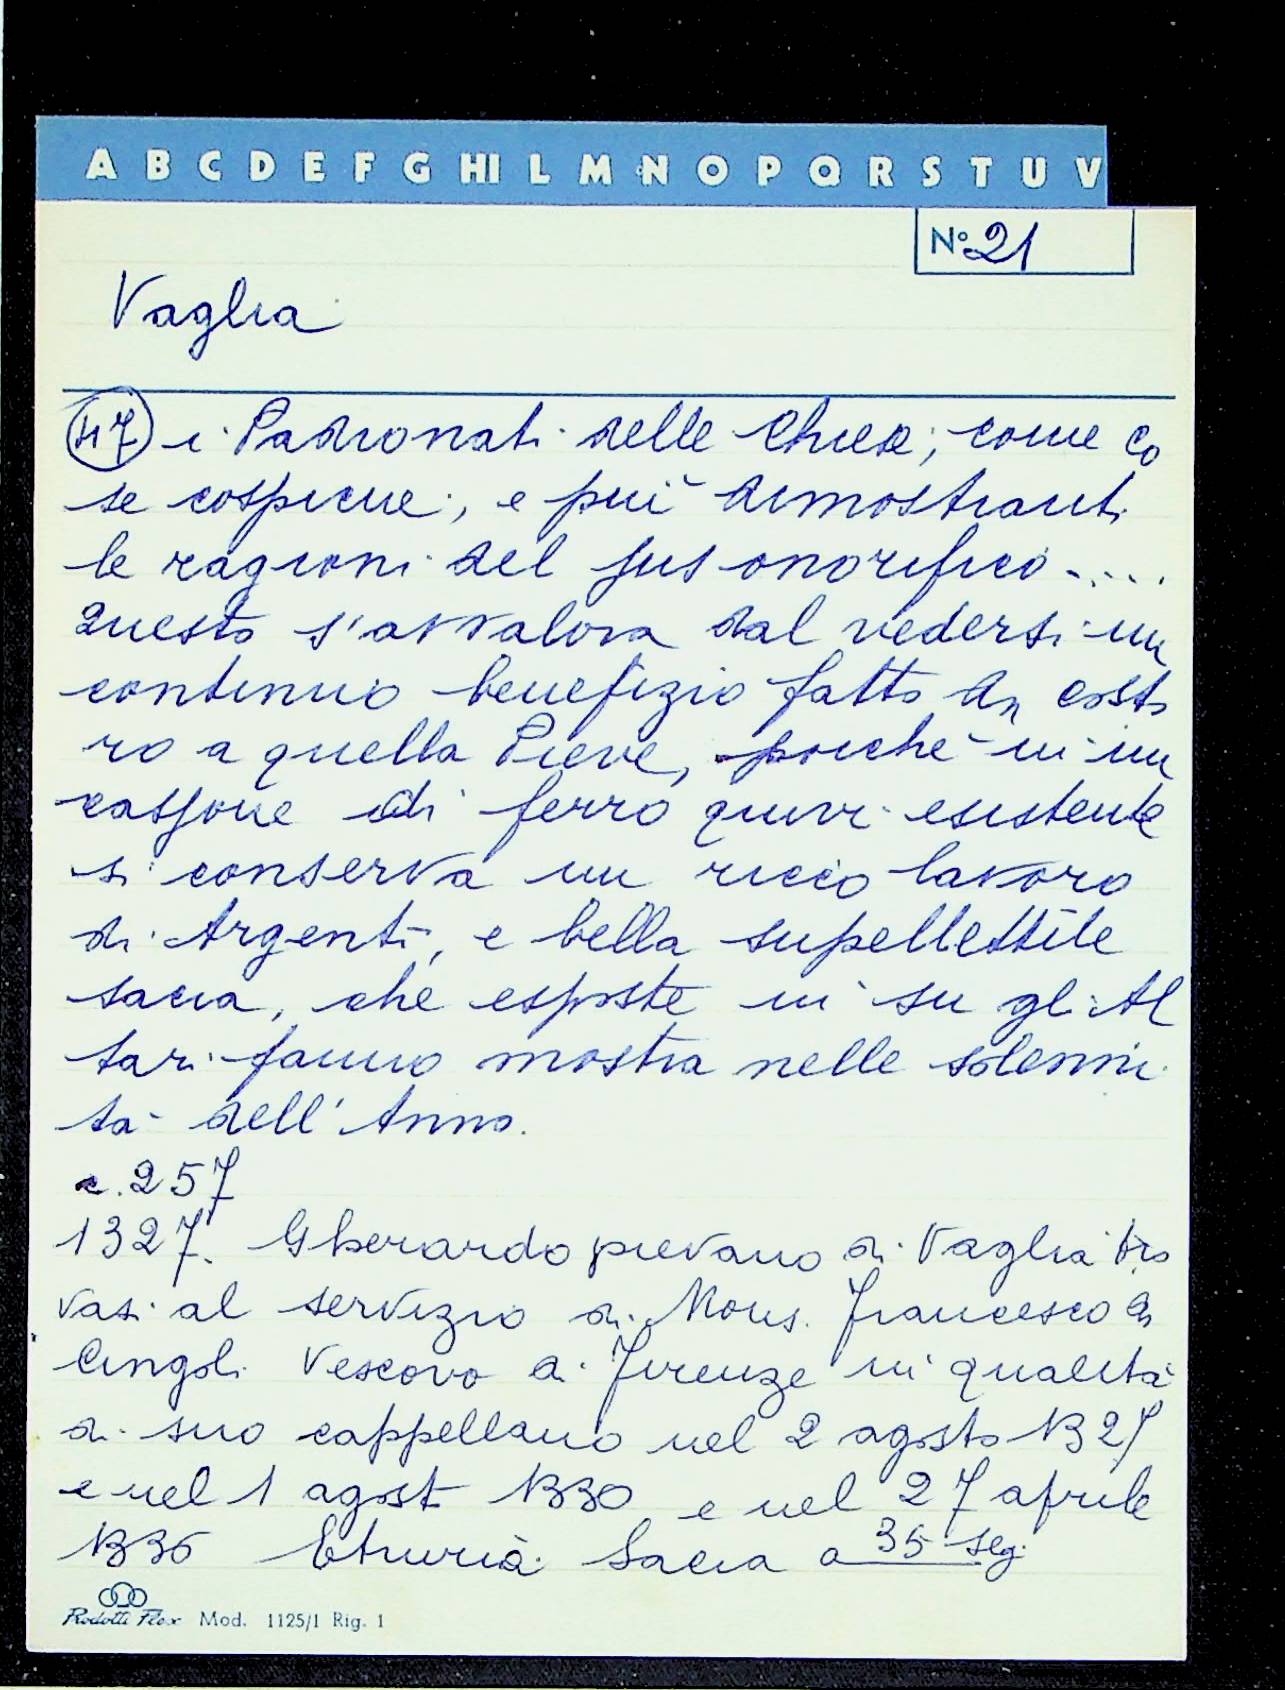 A B C D E F G HI L M N O P Q R S T U V
N° 21
Vaglia
(47) i Padronati delle Chiese; come co
se cospicue; e più dimostranti
le ragioni del jus onorifico.....
Questo s'avvalora dal vedersi un
continuo benefizio fatto da costo
ro a quella Pieve, poiché in un
cassone di ferro quivi esistente
si conserva un ricco lavoro
di Argenti, e bella supellettile
sacra, che esposte in su gli Al
tari fanno mostra nelle solenni
tà dell'Anno.
c. 257
1327. Gherardo pievano di Vaglia tro
vasi al servizio di Mons. Francesco da
Cingoli Vescovo di Firenze in qualità
di suo cappellano nel 2 agosto 1327
e nel 1 agost 1330 e nel 27 aprile
1336 Etruria Sacra a 35 seg.
Rodotti Flex Mod. 1125/1 Rig. 1